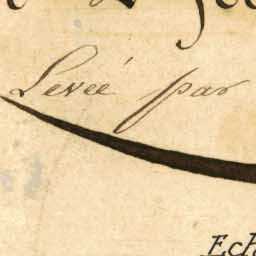 Levée par
Ech